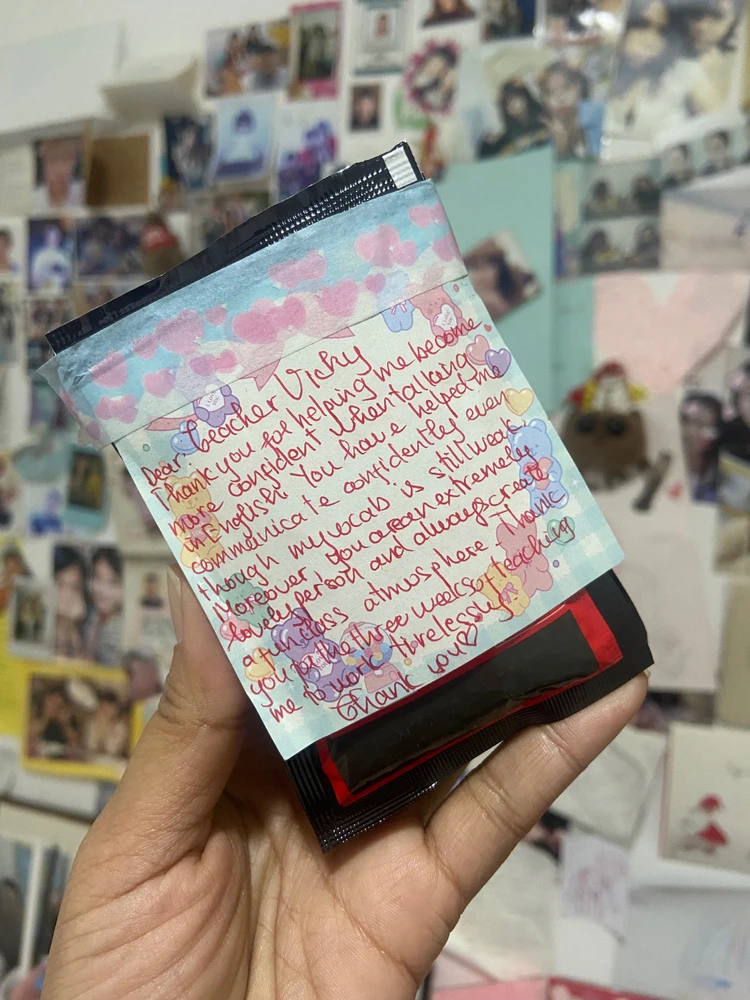 Dear Teacher Vicky
Thank you for helping me become
more confident when talking
in English. You have helped me
communicate confidently even
though my vocab is still weak.
Moreover, you are an extremely
lovely person and always create
a fun class atmosphere. Thank
you for the three weeks of teaching
me to work tirelessly.
Thank you♡